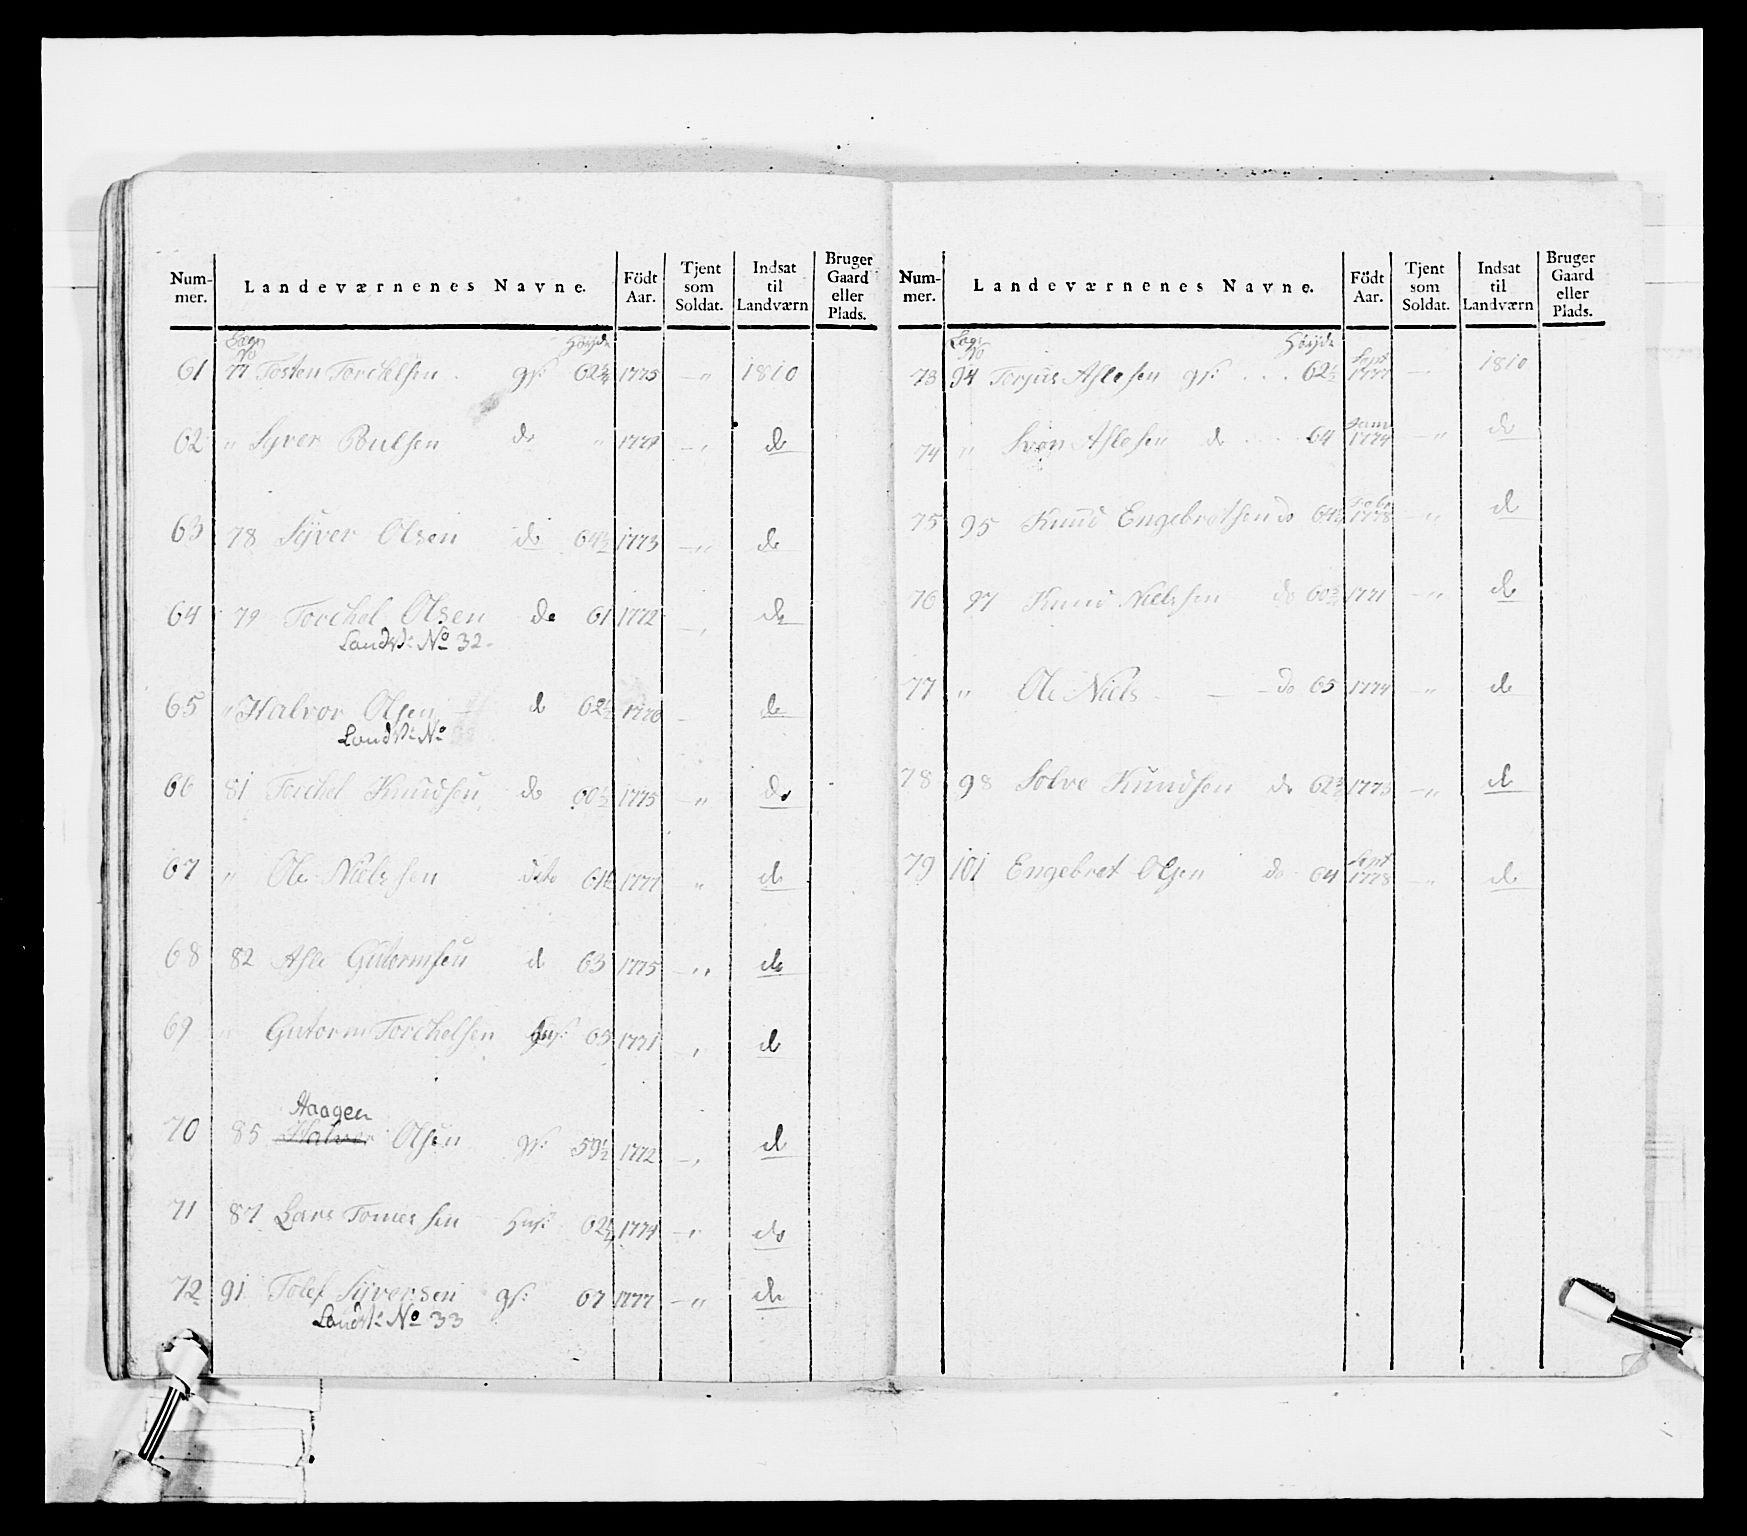 Num-
mer.
Landeværnenes Navne.
Födt
Aar.
Tjent
som
Soldat.
Indsat
til
Landværn
Bruger
Gaard
eller
Plads.
Lægs No Höyde
61 77 Tosten Torchelsen gf: 62¾ 1775 —„ 1810
62 „ Syver Poulsen do „ —„ do
63 78 Syver Olsen do 64½ 1773 —„ do
64 79 Torchel Olsen do 61 1772 —„ do
Landv: No 32.
65 „ Halvor Olsen do 1770 — do
Landv: No
66 81 Torchel Knudsen do 60½ 1775 —„ do
67 „ Ole Nielssen dito 1777 „ do
68 82 Asle Gutormsen do 63 1775 —„ do
69 Gutorm Torchelsen 65 1771 —„ do
70 85 Haagen Halvor Olsen gf: 59½ 1772 —„ do
71 87 Lars Tomessen Huf: 1774 —„ do
72 91 Tolef Syversen gf: 67 1777 —„ do
Landv: No 33
Num-
mer.
Landeværnenes Navne.
Födt
Aar.
Tjent
som
Soldat.
Indsat
til
Landværn
Bruger
Gaard
eller
Plads.
Lægs No Höyde
73 94 Torjus Aslesen gf: 62½ Sept 1777 — 1810
74 „ Aslesen do 64 1774 —„ do
75 95 Knud Engebretsen do Febr 1778 —„ do
76 97 Knud Nielssen do 60¾ 1771 —„ do
77 „ Ole Niels — do 65 1774 —„ do
78 98 Solve Knudsen do 1775 —„ do
79 101 Engebret Olsen do 64 Sept 1778 —„ do